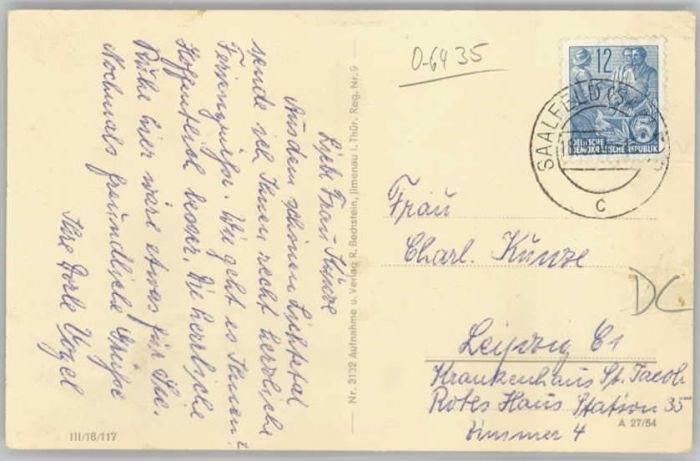 Liebe Frau Kunze
Aus dem schönen Lichtetal
sende ich Ihnen recht herzliche
Feriengrüße. Wie geht es Ihnen?
Hoffentlich besser. Die herrliche
Ruhe hier wäre etwas für Sie.
Nochmals freundliche Grüße
Ihre Dorle Vogel
III/18/117
Nr. 3132 Aufnahme u. Verlag R. Bechstein, Jlmenau i. Thür. Reg. Nr. 9
0-6435
12
DEUTSCHE
DEMOKRATISCHE REPUBLIK
SAALFELD
c
Frau
Charl. Kunze
DC
Leipzig C1
Krankenhaus St. Jacob
Rotes Haus Station 35
Zimmer 4
A 27/54